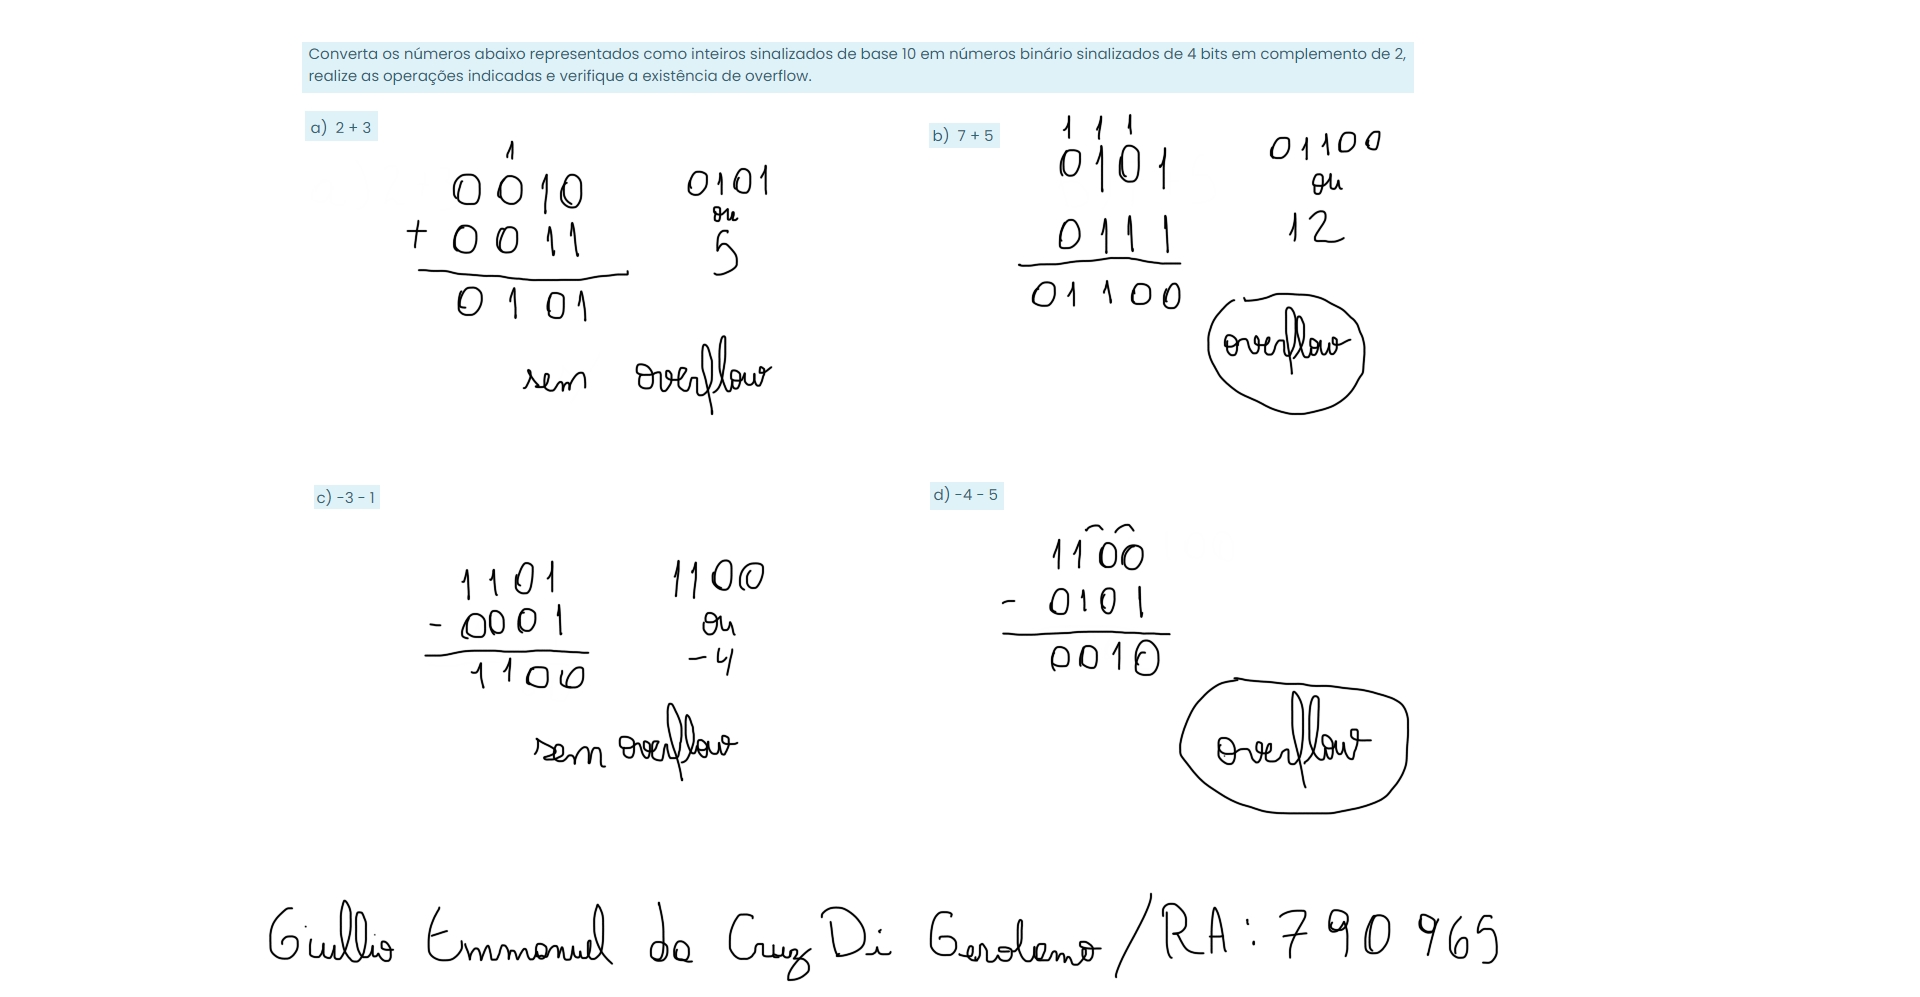 Converta os números abaixo representados como inteiros sinalizados de base 10 em números binário sinalizados de 4 bits em complemento de 2,
realize as operações indicadas e verifique a existência de overflow.
a) 2 + 3
1
0010
+ 0011
0101
0101
ou
5
sem overflow
b) 7 + 5
1 1 1
0101
0111
01100
01100
ou
12
overflow
c) -3 - 1
1101
- 0001
1100
1100
ou
-4
sem overflow
d) -4 - 5
1100
- 0101
0010
overflow
Giullio Emmanuel da Cruz Di Gerolamo / RA: 790965